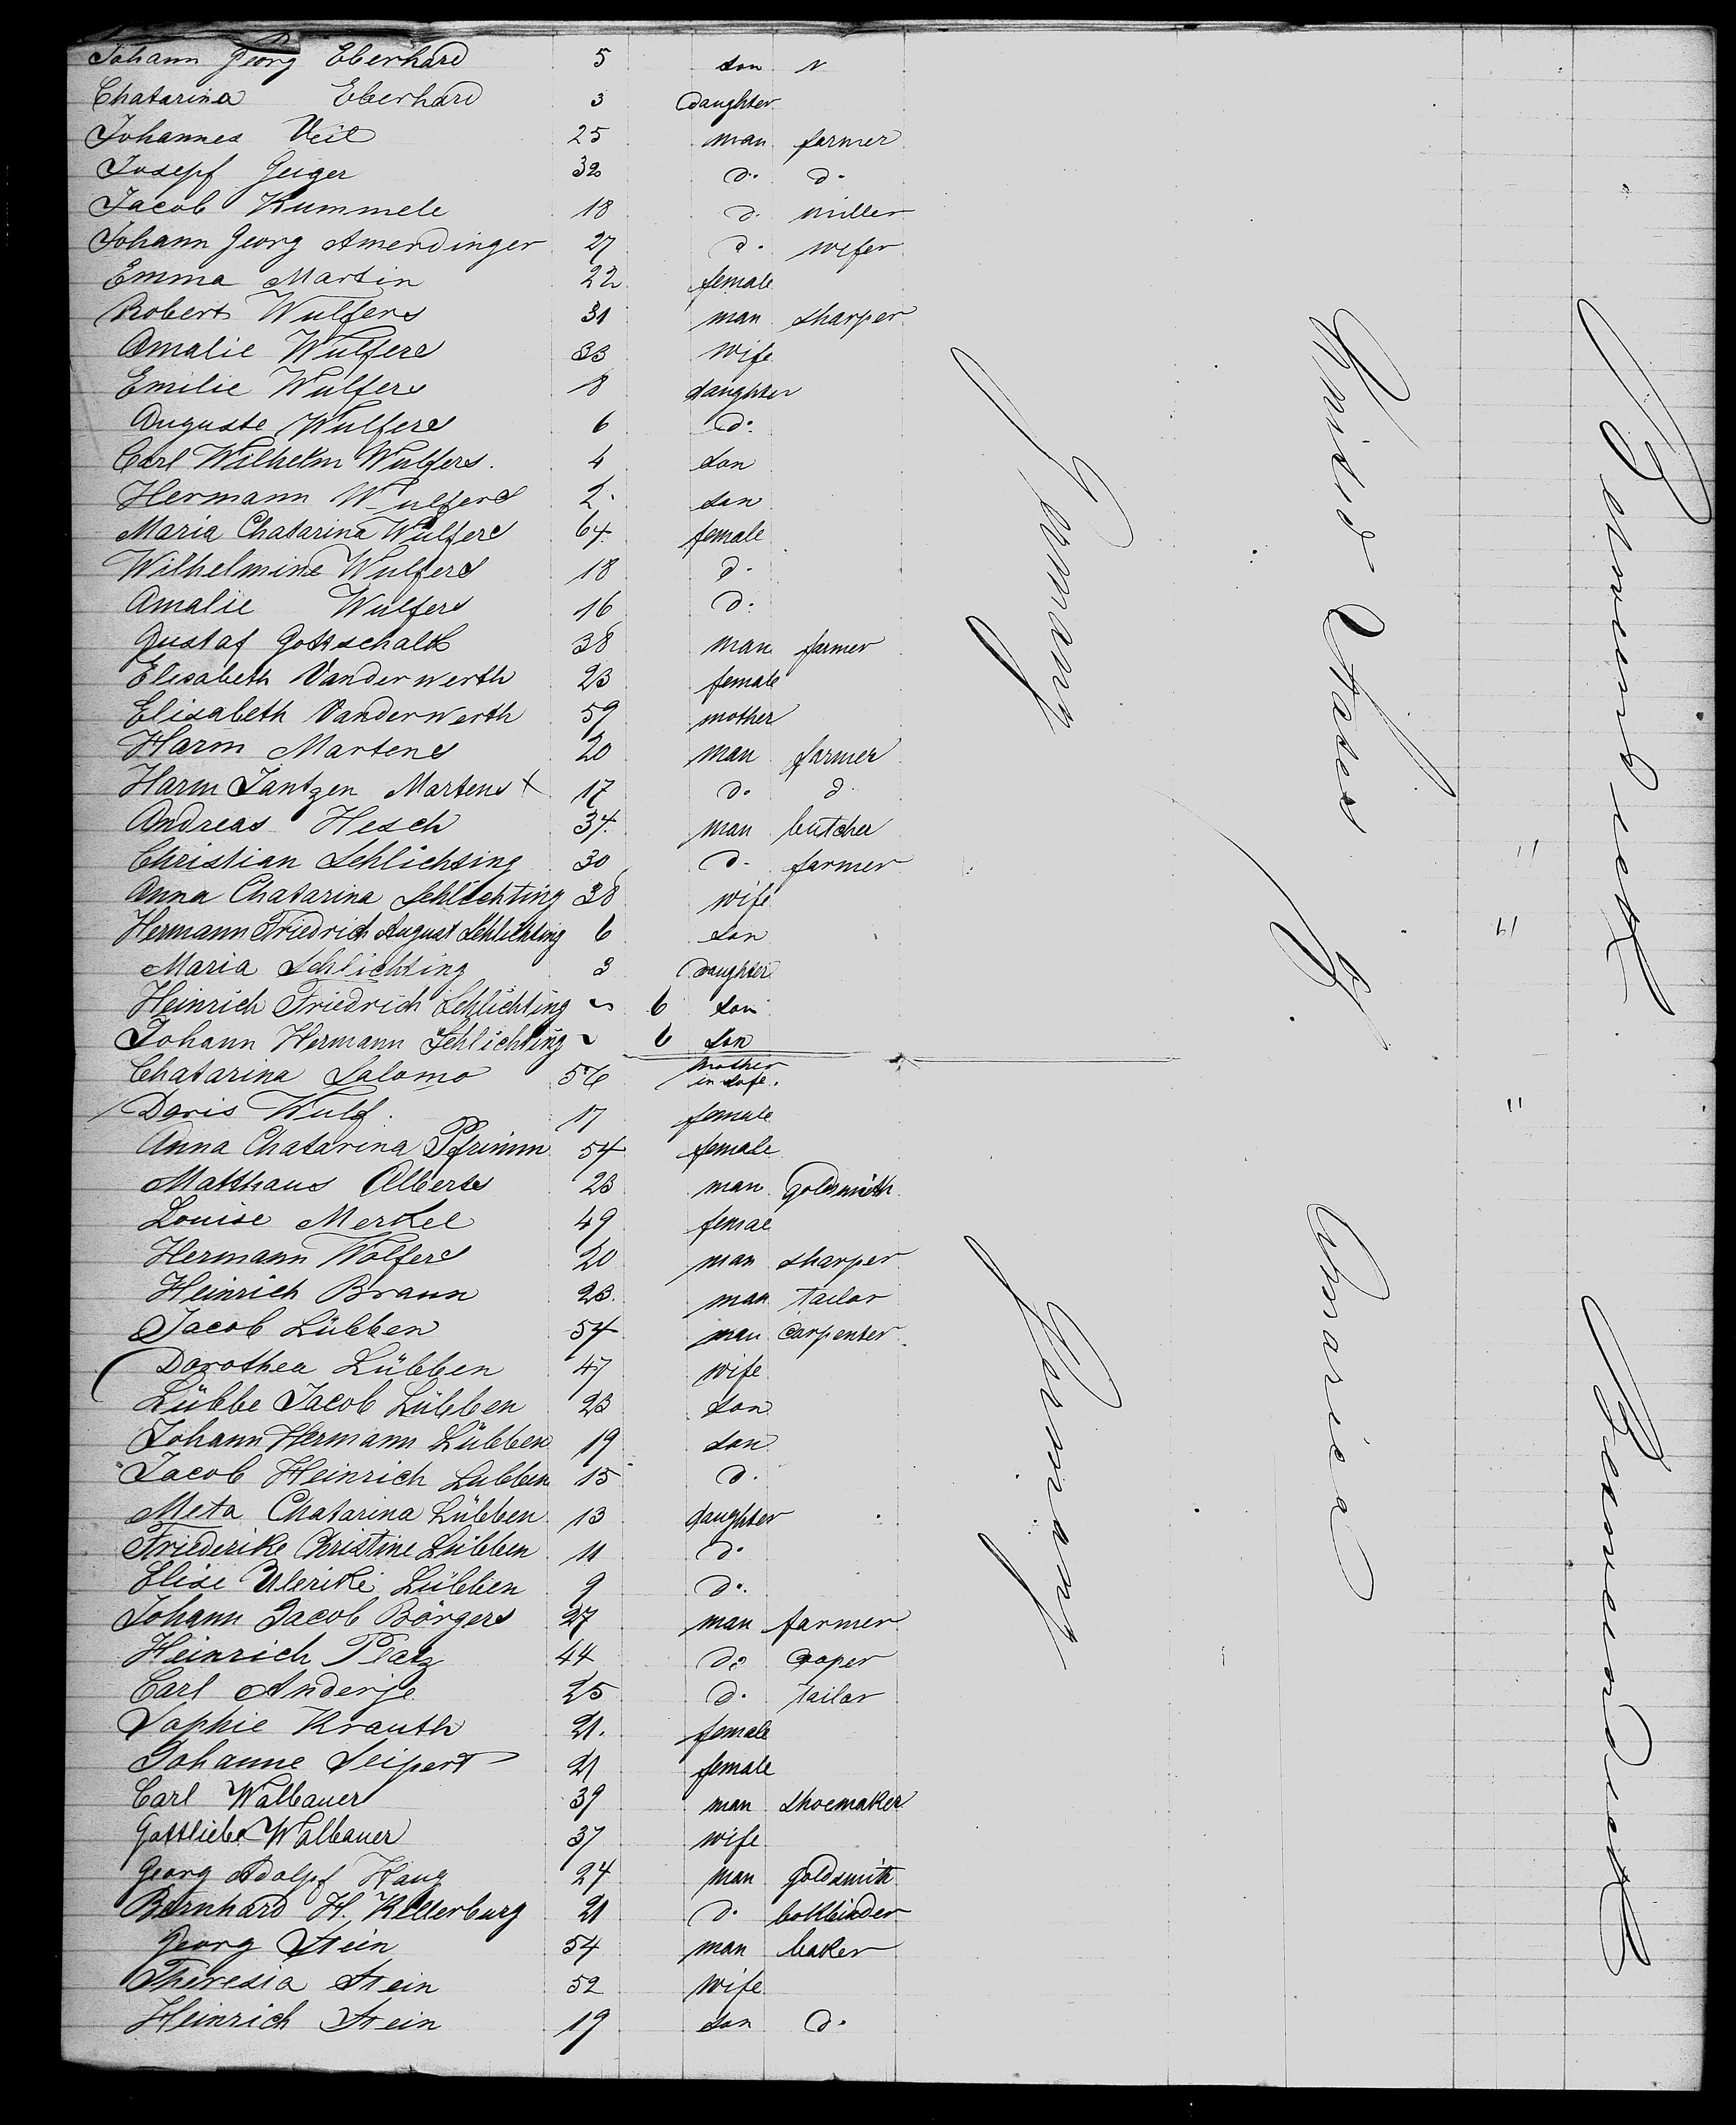 Johann Georg Eberhard 5 son
Chatarina Eberhard 3 daughter
Johannes Veit 25 man farmer
Josepf Geiger 32 do do
Jacob Kummele 18 do miller
Johann Georg Amerdinger 27 do wifer
Emma Martin 22 female
Robert Wulfers 31 man sharper
Amalie Wulfers 33 wife
Emilie Wulfers 8 daughter
Auguste Wulfers 6 do
Carl Wilhelm Wulfers. 4 son
Hermann Wulfers 2 son
Maria Chatarina Wulfers 64 female
Wilhelmine Wulfers 18 do
Amalie Wulfers 16 do
Gustaf Gottschalk 38 man farmer
Elisabeth Vanderwerth 23 female
Elisabeth Vanderwerth 59 mother
Harm Martens 20 man farmer
Harm Jantzen Martens x 17 do do
Andreas Hesch 34 man butcher
Christian Schlichting 30 do farmer
Anna Chatarina Schlichting 38 wife
Hermann Friedrich August Schlichting 6 son
Maria Schlichting 3 daughter
Heinrich Friedrich Schlichting ~ 6 son
Johann Hermann Schlichting ~ 6 son
Chatarina Salomo 56 mother in
Doris Wulf. 17 female
Anna Chatarina Pfrimm 54 female
Matthaus Alberts 23 man goldsmith
Louise Merkel 49 femae
Hermann Wolfers 20 man sharper
Heinrich Braun 23 man tailor
Jacob Lübben 54 man carpenter
Dorothea Lübben 47 wife
Lübbe Jacob Lübben 23 son
Johann Hermann Lübben 19 son
Jacob Heinrich Lubben 15 do
Meta Chatarina Lübben 13 daughter
Friederike Christine Lübben 11 do
Elise Ulerike Lübben 9 do
Johann Jacob Börgers 27 man farmer
Heinrich Platz 44 do cooper
Carl Anderje 25 do tailor
Sophie Krauth 21. female
Johanne Seipert 21 female
Carl Walbauer 39 man shoemaker
Gottliebe Walbauer 37 wife
Georg Adolpf Haug 24 man goldsmith
Bernhard H. Kellerburg 21 do bokbinder
Georg Stein 54 man baker
Theresia Stein 52 wife
Heinrich Stein 19 son do
Germany
Germany
United States of
America